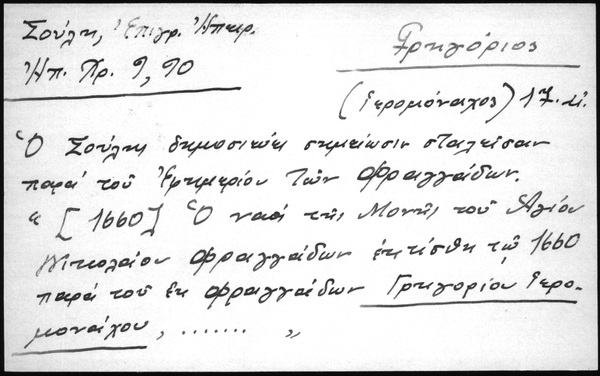 Σούλη, Ἐπιγρ. Ἠπειρ.
Ἠπ. Χρ. 9, 90
Γρηγόριος
(ἱερομόναχος) 17. αἰ.
Ὁ Σούλης δημοσιεύει σημείωσιν σταλεῖσαν
παρά τοῦ Ἐφημερίου τῶν Φραγγάδων.
" [1660] Ὁ ναός τῆς Μονῆς τοῦ Ἁγίου
Νικολάου Φραγγάδων ἐκτίσθη τῷ 1660
παρά τοῦ ἐκ Φραγγάδων Γρηγορίου ἱερο-
μονάχου, ....... "